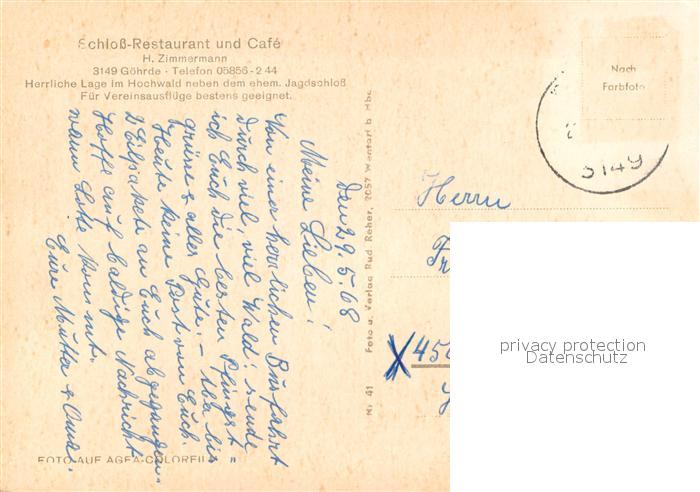 Schloß-Restaurant und Café
H. Zimmermann
3149 Göhrde · Telefon 05856-2 44
Herrliche Lage im Hochwald neben dem ehem. Jagdschloß
Für Vereinsausflüge bestens geeignet.
Den 29.5.68
Meine Lieben!
Von einer herrlichen Busfahrt
durch viel, viel Wald! sende
ich Euch die besten Pfingst=
grüße & alles Gute. – bis
Heute keine Post von Euch.
2 Eilpaket an Euch abgegangen.
Hoffe auf baldige Nachricht
wann kommt.
Eure Mutter & Oma.
FOTO AUF AGFA-COLORFIL
Nr. 41 Foto u. Verlag Rud. Reher, 2057 Wentorf b. Hbg.
Nach
Farbfoto
3149
Herrn
Fr
X 450
privacy protection
Datenschutz